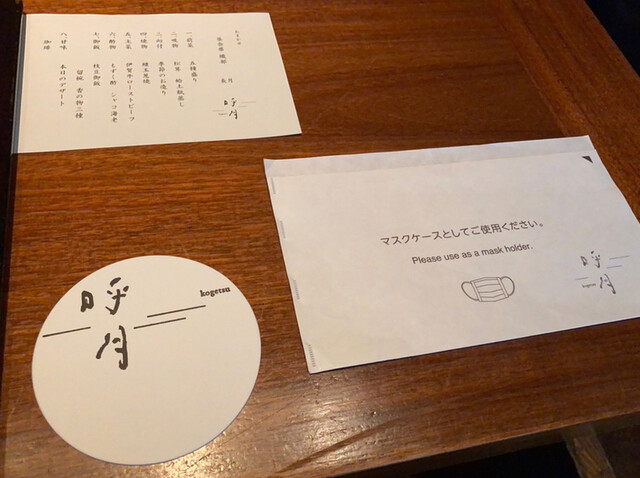 一 前菜 五種盛り
二 吸物 松茸 蛤土瓶蒸し
三 向付 季節のお造り
四 焼物
五 主菜 伊賀牛ローストビーフ
六 酢物 もずく酢 シャコ海老
七 御飯 枝豆御飯
留椀 香の物三種
八 甘味 本日のデザート
珈琲
呼月
マスクケースとしてご使用ください。
Please use as a mask holder.
呼月
kogetsu
呼月
kogetsu